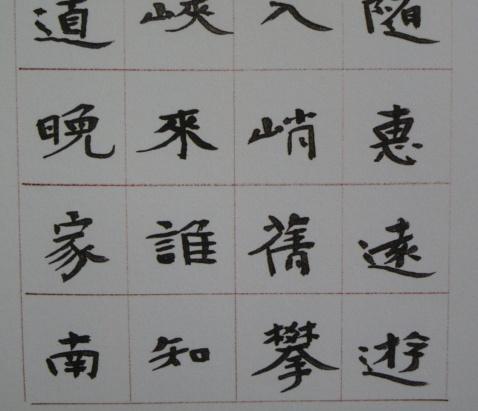 隨惠遠遊
入峭蒨攀
峽來誰知
道晚家南